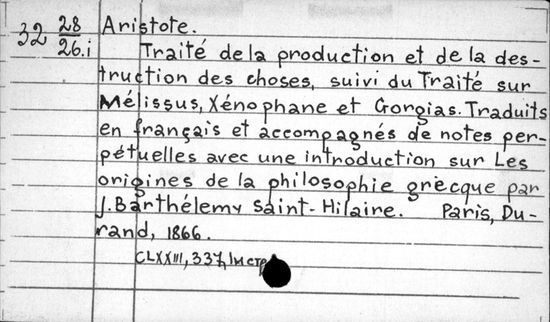 32 28/26.i Aristote.
Traité de la production et de la des-
truction des choses, suivi du Traité sur
Mélissus, Xénophane et Gorgias. Traduits
en français et accompagnés de notes per-
pétuelles avec une introduction sur Les
origines de la philosophie grecque par
J. Barthélemy Saint-Hilaire. Paris, Du-
rand, 1866.
CLXXIII, 337, 1